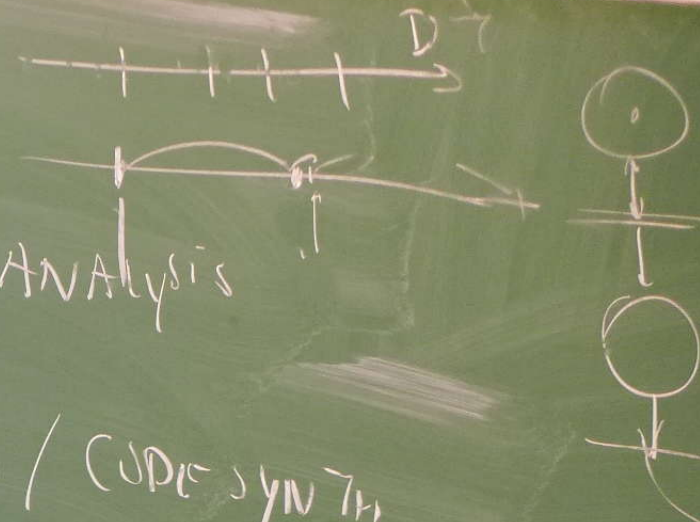 ANALYSIS
/ CODE SYNTH